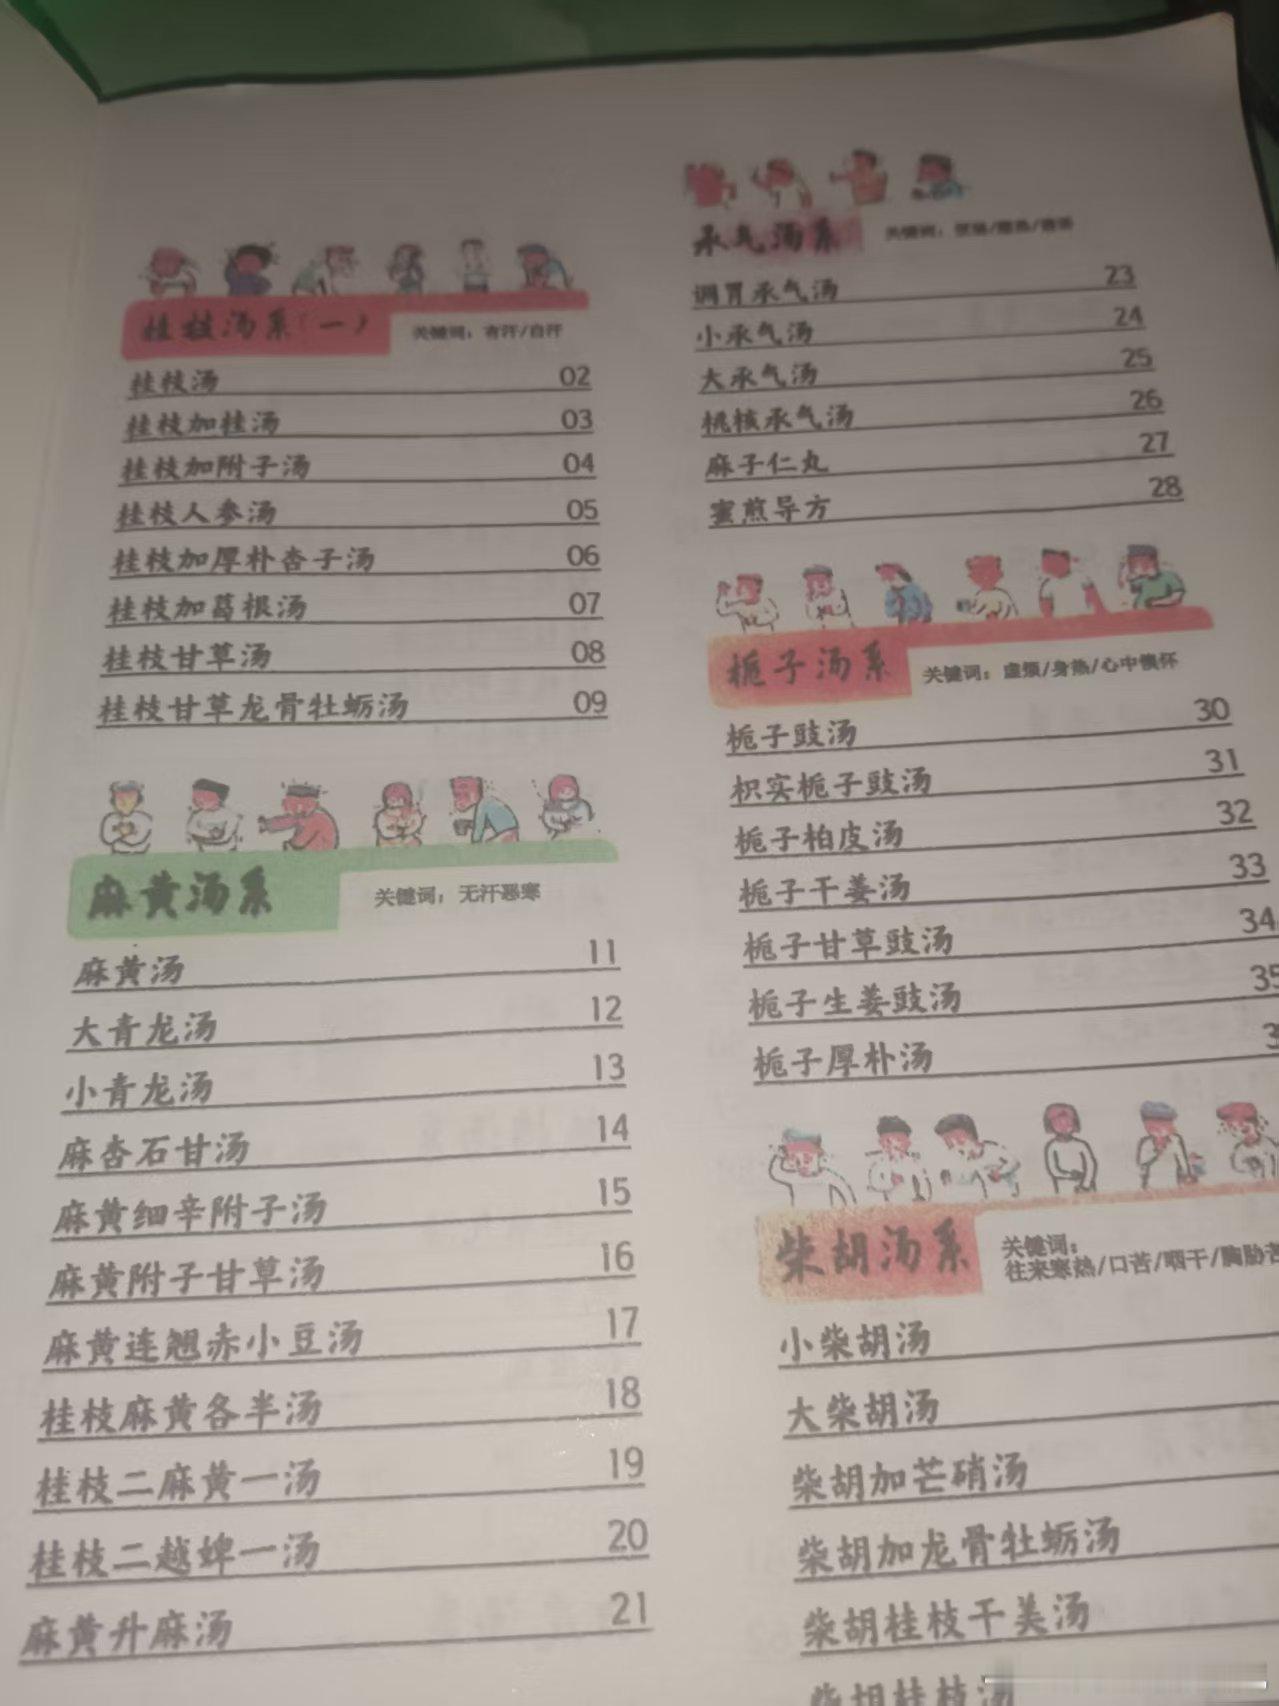 桂枝汤系(一)
关键词：有汗/自汗
桂枝汤 02
桂枝加桂汤 03
桂枝加附子汤 04
桂枝人参汤 05
桂枝加厚朴杏子汤 06
桂枝加葛根汤 07
桂枝甘草汤 08
桂枝甘草龙骨牡蛎汤 09
麻黄汤系
关键词：无汗恶寒
麻黄汤 11
大青龙汤 12
小青龙汤 13
麻杏石甘汤 14
麻黄细辛附子汤 15
麻黄附子甘草汤 16
麻黄连翘赤小豆汤 17
桂枝麻黄各半汤 18
桂枝二麻黄一汤 19
桂枝二越婢一汤 20
麻黄升麻汤 21
承气汤系
关键词：
调胃承气汤 23
小承气汤 24
大承气汤 25
桃核承气汤 26
麻子仁丸 27
蜜煎导方 28
栀子汤系
关键词：虚烦/身热/心中懊怀
栀子豉汤 30
枳实栀子豉汤 31
栀子柏皮汤 32
栀子干姜汤 33
栀子甘草豉汤 34
栀子生姜豉汤 35
栀子厚朴汤 3
柴胡汤系
关键词：
往来寒热/口苦/咽干/胸胁苦
小柴胡汤
大柴胡汤
柴胡加芒硝汤
柴胡加龙骨牡蛎汤
柴胡桂枝干美汤
柴胡桂枝汤